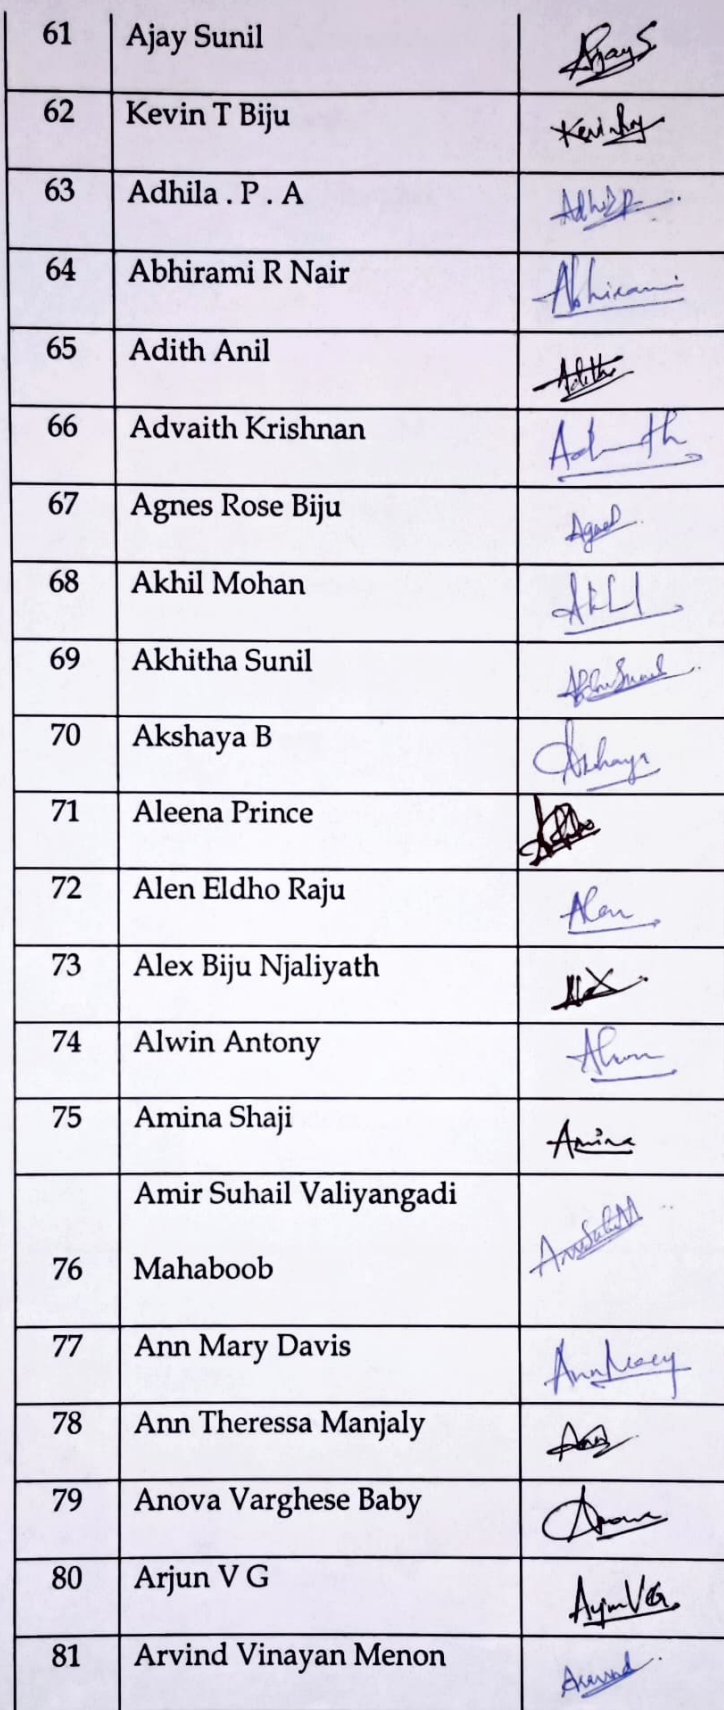 61 Ajay Sunil Ajay S
62 Kevin T Biju
63 Adhila . P . A
64 Abhirami R Nair Abhirami
65 Adith Anil Adith
66 Advaith Krishnan
67 Agnes Rose Biju Agnes
68 Akhil Mohan Akhil
69 Akhitha Sunil
70 Akshaya B Akshaya
71 Aleena Prince
72 Alen Eldho Raju Alen
73 Alex Biju Njaliyath
74 Alwin Antony Alwin
75 Amina Shaji Amina
Amir Suhail Valiyangadi
76 Mahaboob
77 Ann Mary Davis Ann Mary
78 Ann Theressa Manjaly Ann
79 Anova Varghese Baby
80 Arjun V G Arjun V G
81 Arvind Vinayan Menon Arvind